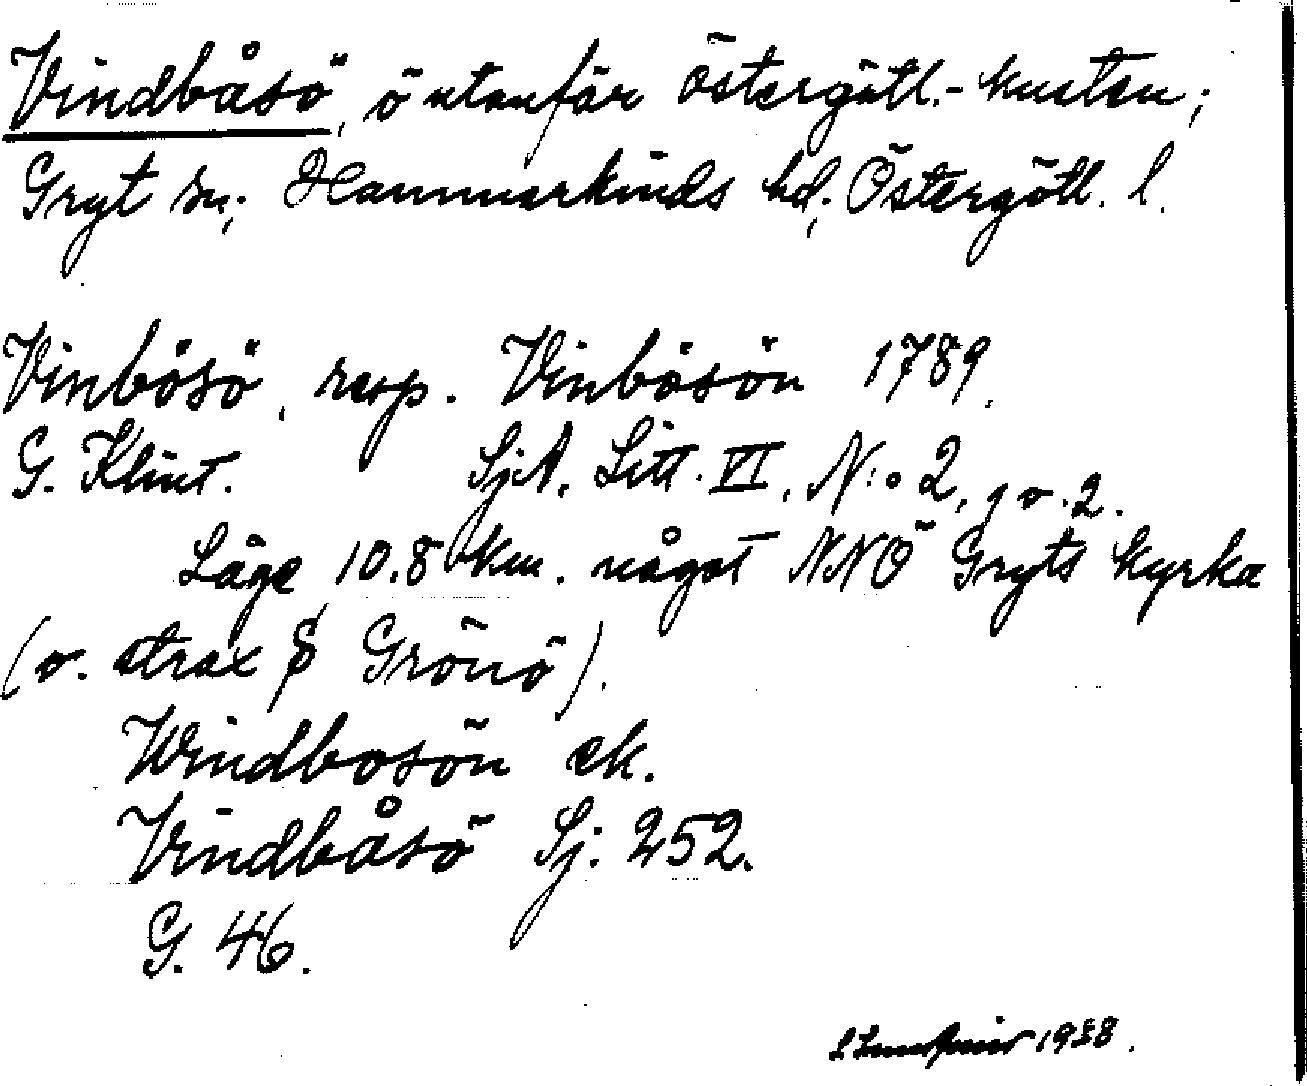 Vindbåsö, ö utanför östergötl.-kusten;
Gryt sn; Hammarkinds hd; Östergötl. l.
Vinbösö, resp. Vinbösön 1789.
G. Klint. SjA. Litt. VI, N:o 2, 2.
Läge 10.8 km. något NNÖ Gryts kyrka
(o. strax S Grönö).
Windbosön ek.
Vindbåsö Sj. 252.
G. 46.
1938.